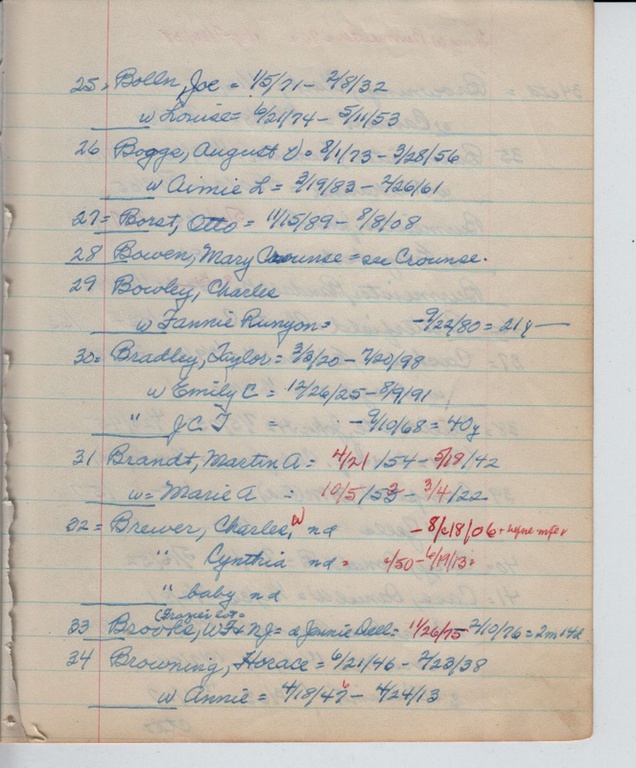 25, Bolln, Joe = 1/5/71 - 2/8/32
w Louise = 6/21/74 - 5/11/53
26 Boggs, August D = 8/1/73 - 3/28/56
w Aimie L = 3/19/83 - 2/26/61
27 = Borst, Otto = 11/15/89 - 8/8/08
28 Bowen, Mary Crounse = see Crounse.
29 Bowley, Charles
w Fannie Runyon = - 9/22/80 = 21y
30 = Bradley, Taylor = 3/3/20 - 7/20/98
w Emily C = 12/26/25 - 8/9/91
" J.C.T = - 9/10/68 = 40y
31 Brandt, Martin A = 4/21/54 - 5/18/42
w = Marie A = 10/5/53 - 3/4/22
32 = Brewer, Charles, W nd - 8/18/06
" Cynthia nd = /50 - 6/19/13 =
" baby nd
(Frazier lot =
33 Brooks, = d Jennie Dell = 11/26/75 2/10/76 = 2m 14d
34 Browning, Horace = 6/21/46 - 2/23/38
w Annie = 4/18/47 6 - 4/24/13